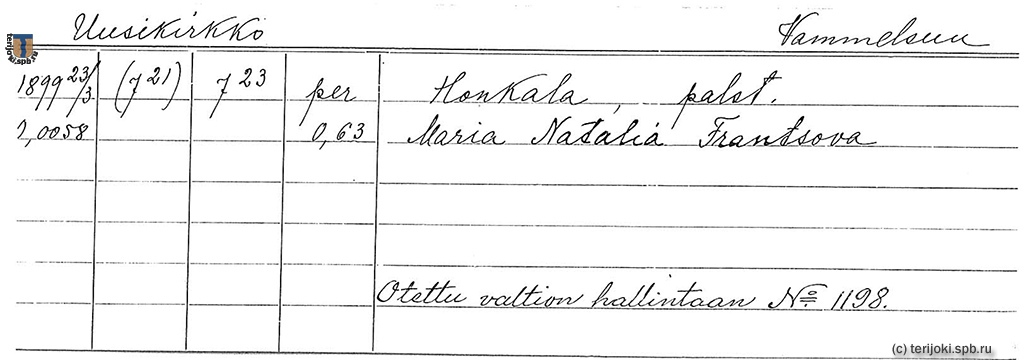 Uusikirkko Vammelsuu
1899 23/3 (7 21) 7 23 per Honkala, palst.
2,0058 0,63 Maria Natalia Frantsova
Otettu valtion hallintaan No 1198.
terijoki.spb.ru
(c) terijoki.spb.ru